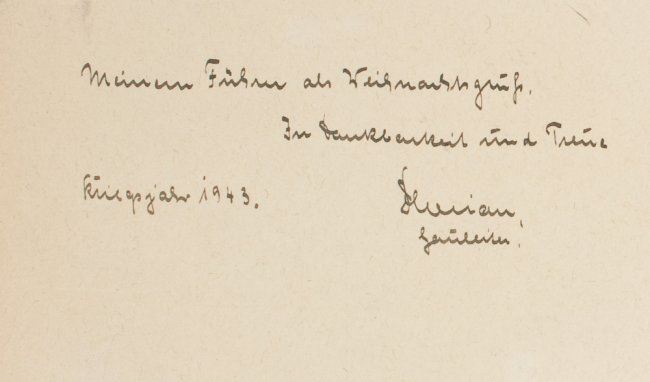 Meinem Führer als Weihnachtsgruß.
In Dankbarkeit und Treue
Kriegsjahr 1943.
Florian,
Gauleiter.